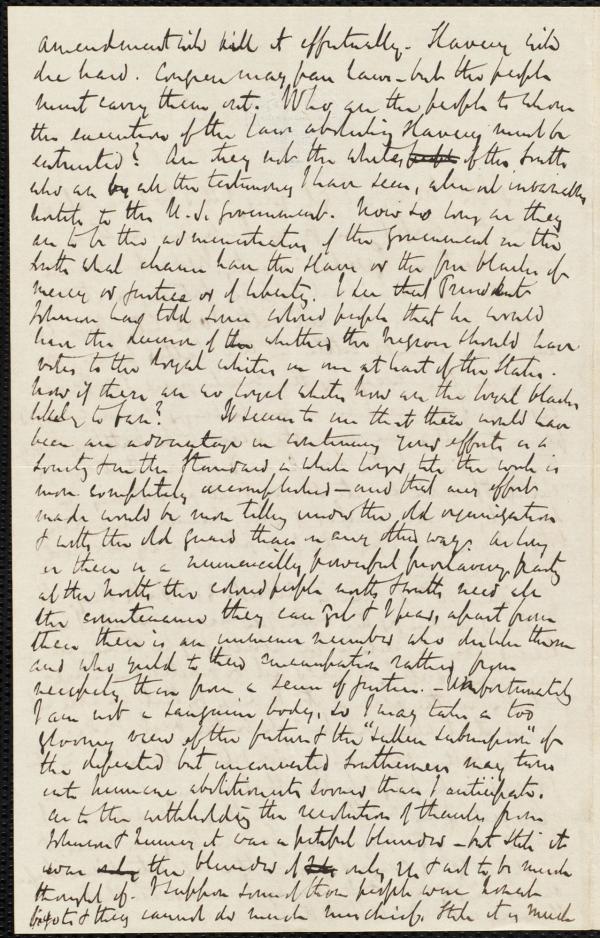 amendment will kill it effectually. Slavery will
die hard. Congress may pass laws - but the people
must carry them out. Who are the people to whom
the execution of the laws abolishing Slavery must be
entrusted? Are they not the whites of the South
who are by all the testimony I have seen, almost invariably
hostile to the U.S. Government. Now so long as they
are to be the administrators of the government in the
South what chance have the slave or the free blacks of
mercy or justice or of liberty. I see that President
Johnson has told some colored people that he would
leave the decision of the whether the Negroes should have
votes to the loyal whites in one at least of the States.
Now if there are no loyal whites how are the loyal blacks
likely to fare? It seems to me that there would have
been an advantage in continuing your efforts as a
Society & in the Standard a while longer till the work is
more completely accomplished - and that any effort
made would be more telling under the old organization
& with the old guard than in any other way. As long
as there is a numerically powerful proslavery party
at the North the colored people north & south need all
the countenance they can get & I fear, apart from
these there is an immense number who dislike them
and who yield to their emancipation rather from
necessity than from a sense of justice. - Unfortunately
I am not a sanguine body, so I may take a too
gloomy view of the future & the "sullen submission" of
the defeated but unconverted Southerners may turn
into humane abolitionists sooner than I anticipate.
As to the withholding the resolution of thanks from
Johnson & it was a pitiful blunder - but still it
was the blunder of only, & not to be much
thought of. I suppose some of those people were honest
bigots & they cannot do much mischief. Still it is much